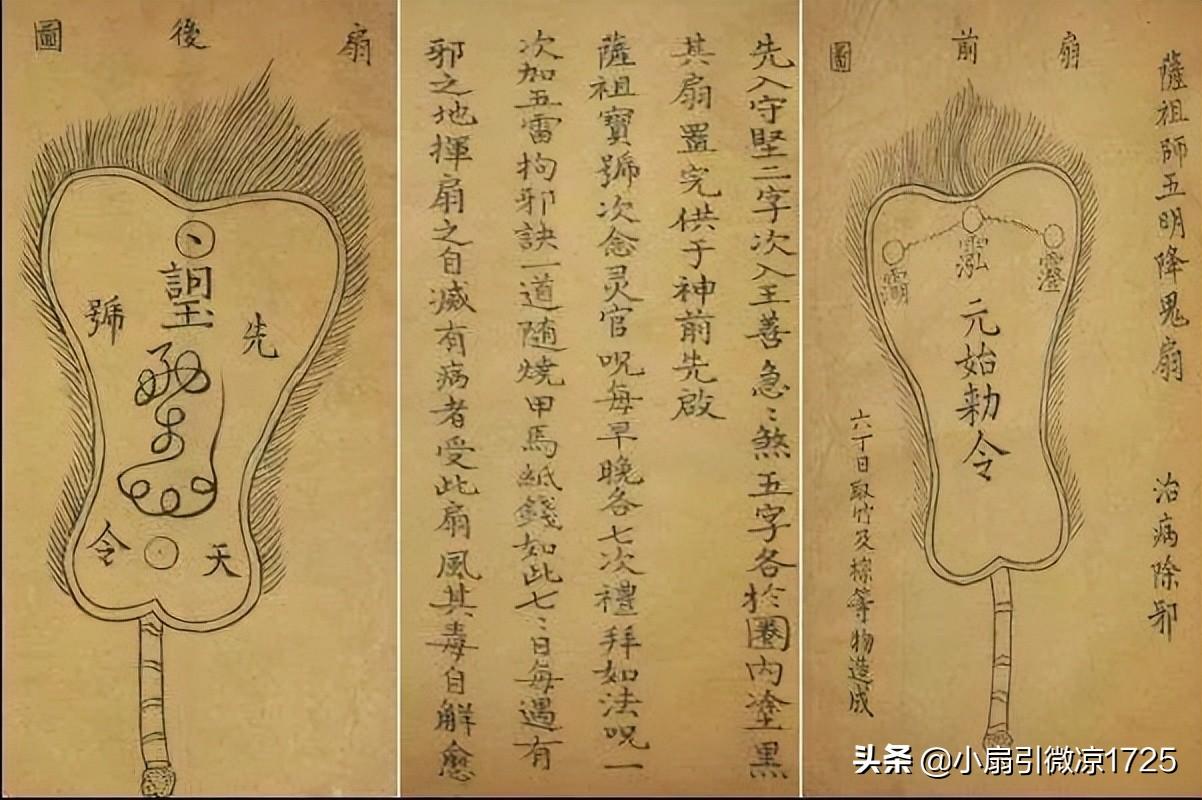 薩祖師五明降鬼扇 治病除邪
扇前圖
元始勅令
六丁日取竹及棕等物造成
先入守堅二字次入王善急〻煞五字各於圈內塗黑
其扇置完供于神前先啟
薩祖寶號次念灵官呪每早晚各七次禮拜如法呪一
次加五雷拘邪訣一道随燒甲馬紙錢如此七〻日每遇有
邪之地揮扇之自滅有病者受此扇風其毒自解愈
扇後圖
先天
號令
头条 @小扇引微凉1725